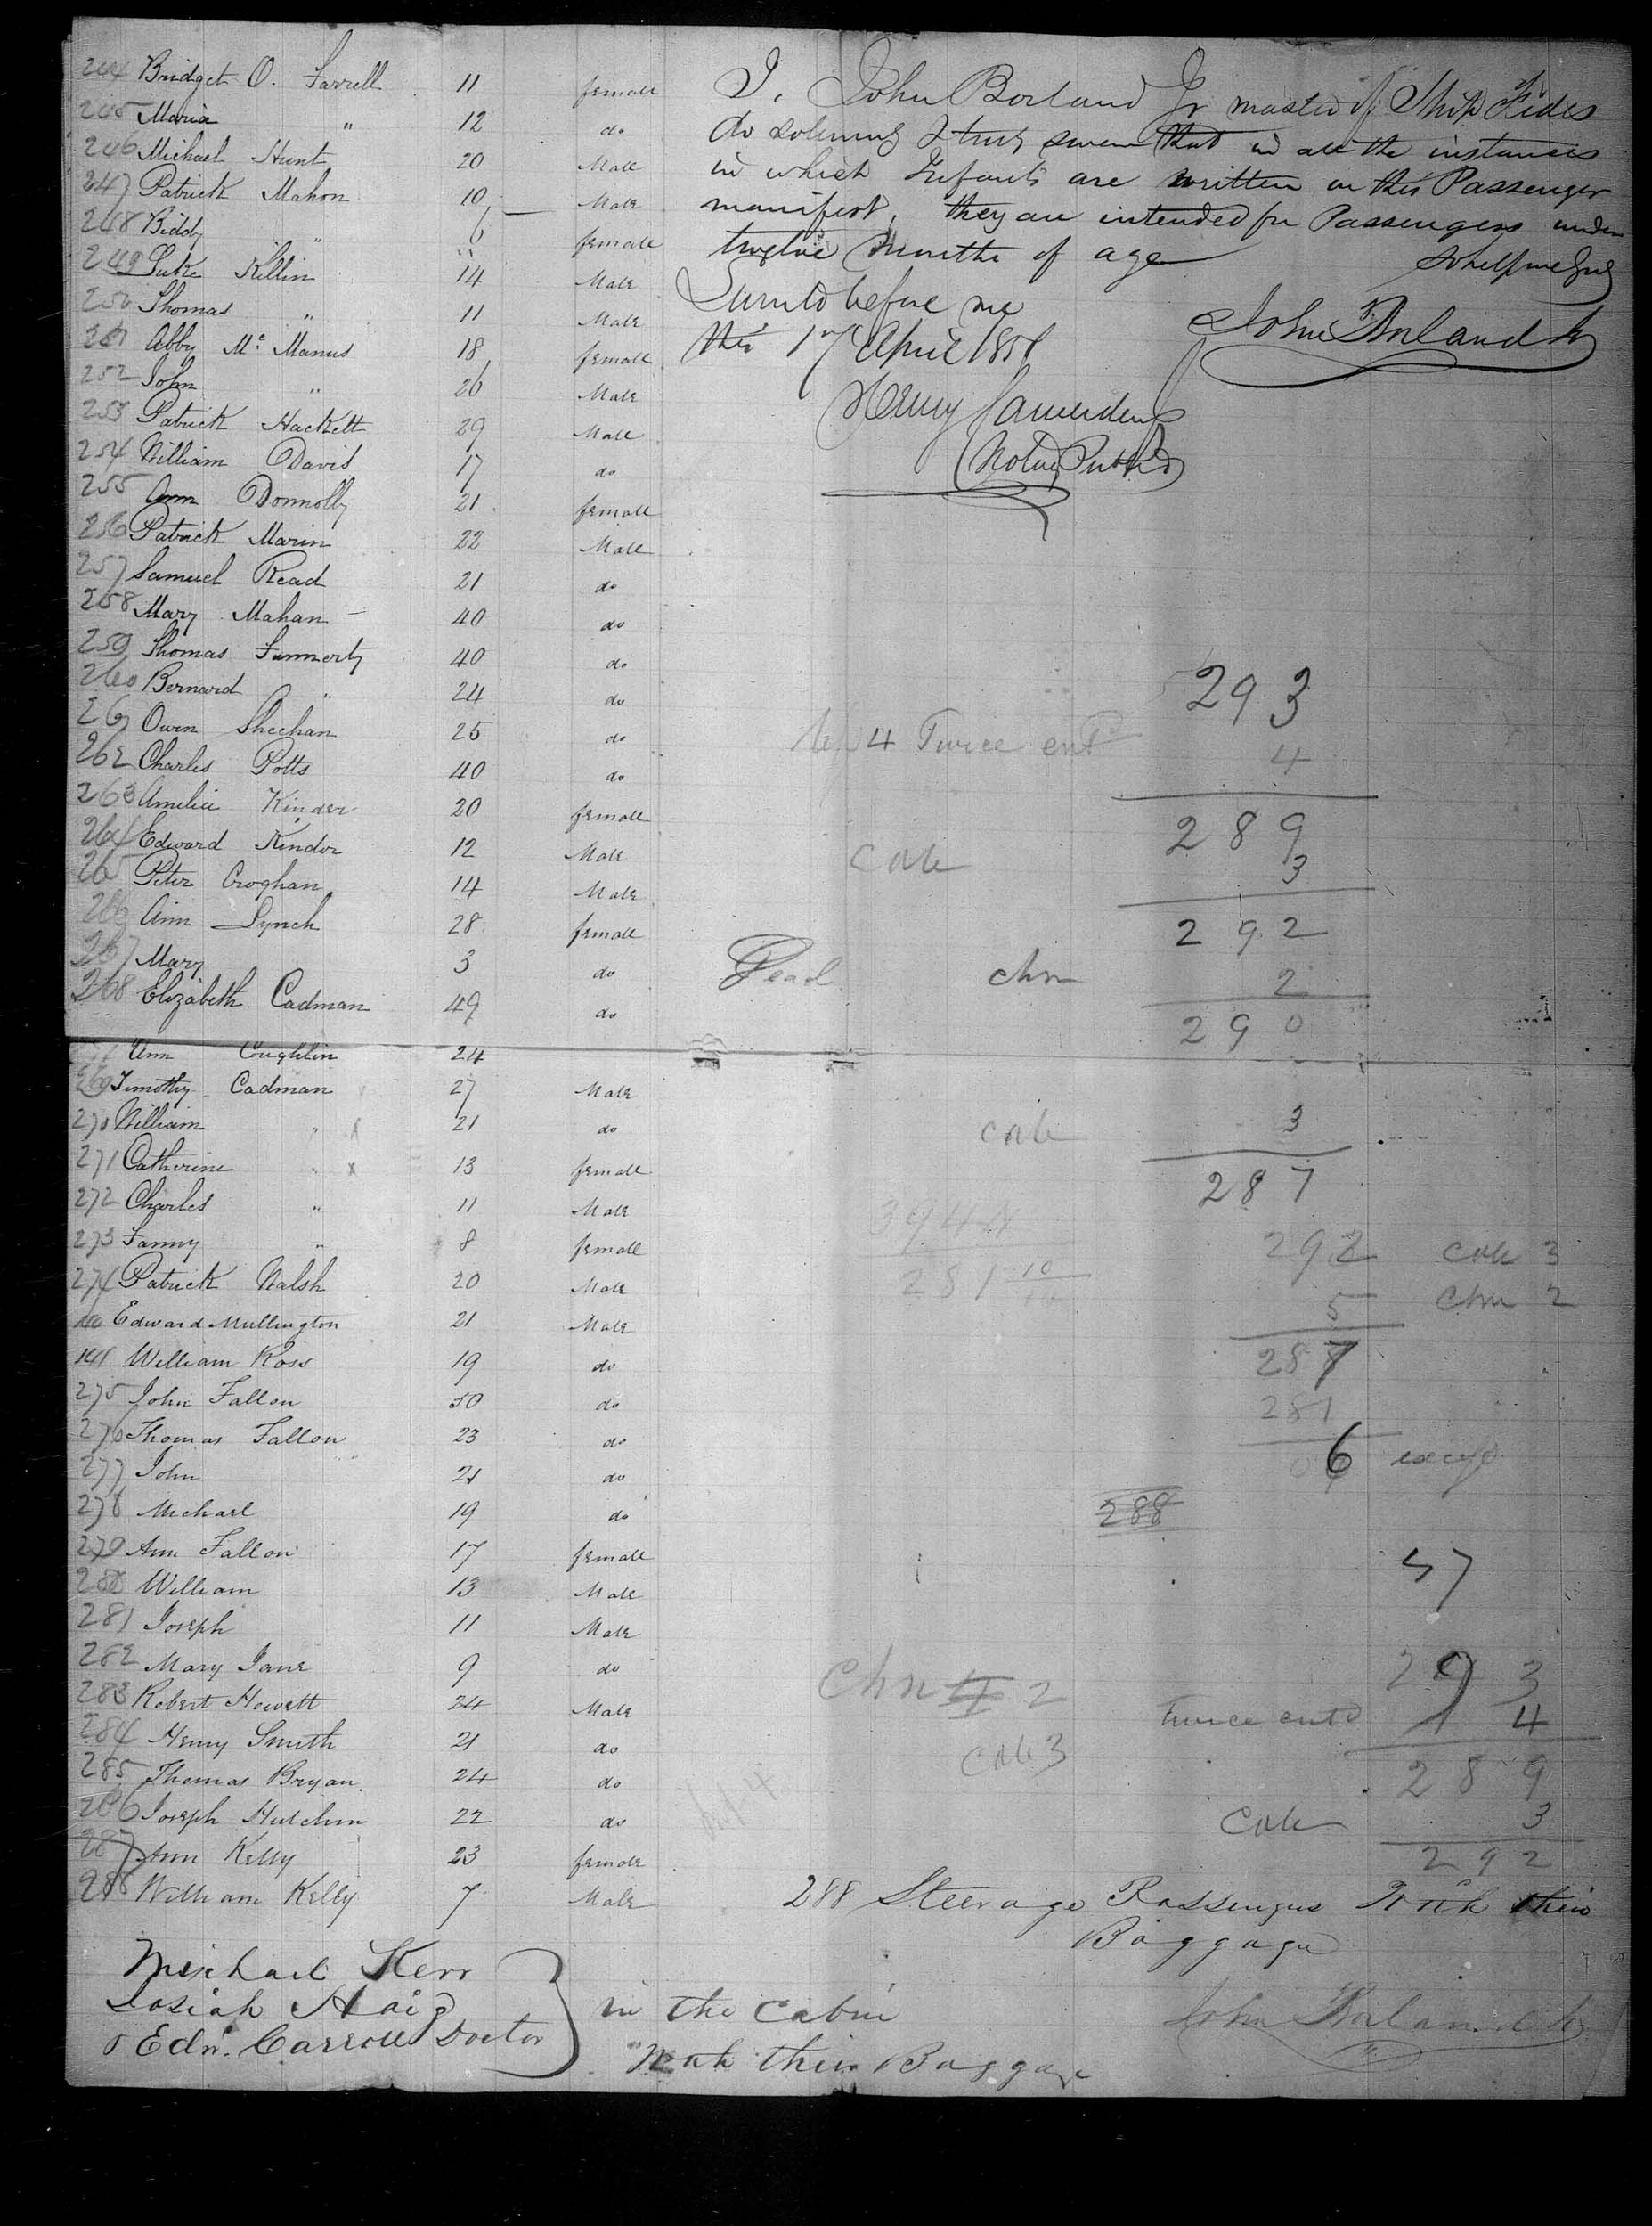 244 Bridget O. Farrell 11 female
245 Maria " 12 do
246 Michael Hunt 20 Male
247 Patrick Mahon 10 Male
248 Biddy " 6 female
249 Luke Killin 14 Male
250 Thomas " 11 Male
251 Abby Mc Manus 18 female
252 John " 26 Male
253 Patrick Hackett 29 Male
254 William Davis 17 do
255 Ann Donnolly 21 female
256 Patrick Marin 22 Male
257 Samuel Read 21 do
258 Mary Mahan 40 do
259 Thomas Finnerty 40 do
260 Bernard " 24 do
261 Owen Sheehan 25 do
262 Charles Potts 40 do
263 Amelia Kinder 20 female
264 Edward Kindor 12 Male
265 Peter Croghan 14 Male
266 Ann Lynch 28 female
267 Mary 3 do Dead
268 Elizabeth Cadman 49 do
Ann Coughlin 24
269 Timothy Cadman 27 Male
270 William " 21 do
271 Catherine " x 13 female
272 Charles " 11 Male
273 Fanny " 8 female
274 Patrick Walsh 20 Male
140 Edward Mullington 21 Male
141 William Ross 19 do
275 John Fallon 50 do
276 Thomas Fallon 23 do
277 John 21 do
278 Michael 19 do
279 Ann Fallon 17 female
280 William 13 Male
281 Joseph 11 Male
282 Mary Jane 9 do
283 Robert Hewett 24 Male
284 Henry Smith 21 do
285 Thomas Bryan 24 do
286 Joseph Hutchin 22 do
287 Ann Kelly 23 female
288 William Kelly 7 Male
Michael Kerr
Josiah Haig
Edn. Carroll Doctor
in the Cabin
With their Baggage
I, John Borland Jr master of Ship Fides
do solemnly & truly swear that in all the instances
in which Infants are written on this Passenger
manifest, they are intended for Passengers under
twelve months of age
So help me God
Sworn to before me
this 17 April 1851
John Borland Jr
Henry Saunders
Notary Public
293
4 Twice entd 4
289
3
292
chn 2
290
3
287
292
5
287
281
6
288
57
293
twice entd 4
289
3
292
chn 2
288 Steerage Passengers With their
Baggage
John Borland Jr